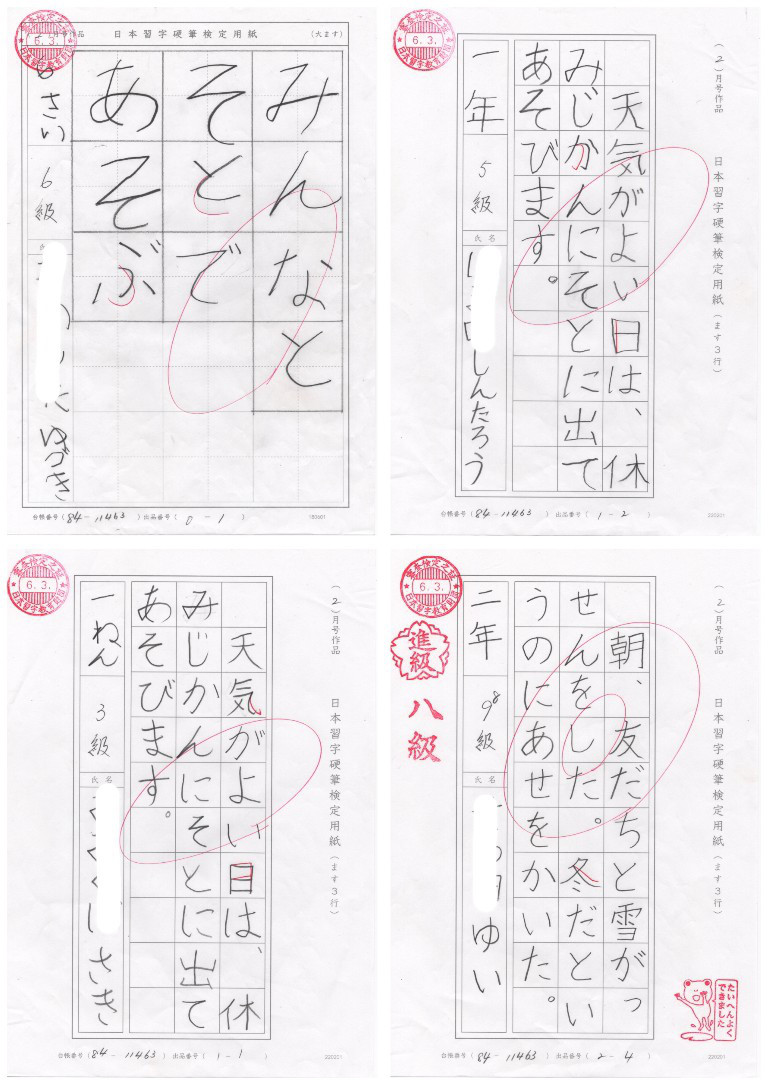 月号作品 日本習字硬筆検定用紙 (大ます)
審査検定之証
6. 3.
日本習字教育財団
みんなと
そとで
あそぶ
6級
ゆづき
台帳番号 (84-11463) 出品番号 (0-1)
審査検定之証
6. 3.
日本習字教育財団
(2)月号作品 日本習字硬筆検定用紙 (ます3行)
天気がよい日は、休
みじかんにそとに出て
あそびます。
一年 5級 氏名 しんたろう
台帳番号 (84-11463) 出品番号 (1-2)
220201
審査検定之証
6. 3.
日本習字教育財団
(2)月号作品 日本習字硬筆検定用紙 (ます3行)
天気がよい日は、休
みじかんにそとに出て
あそびます。
一ねん 3級 氏名 さき
台帳番号 (84-11463) 出品番号 (1-1)
220201
審査検定之証
6. 3.
日本習字教育財団
進級
八級
(2)月号作品 日本習字硬筆検定用紙 (ます3行)
朝、友だちと雪がっ
せんをした。冬だとい
うのにあせをかいた。
二年 98級 氏名 ゆい
たいへんよく
できました
台帳番号 (84-11463) 出品番号 (2-4)
220201